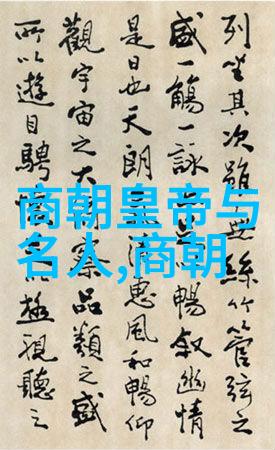 商朝皇帝与
名人,商朝
列坐其次雖無絲竹管弦之
盛一觴一詠暢敘幽情
是日也天朗惠風和暢仰
觀宇宙之大察品類之盛
所以遊目騁極視聽之